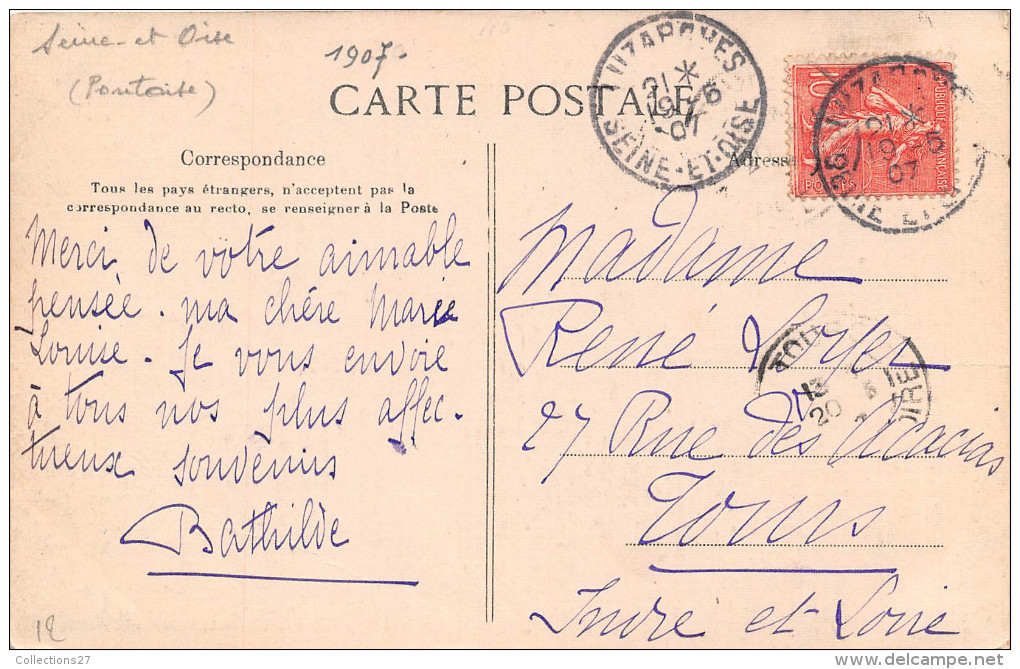 Seine-et Oise
(Pontoise)
1907.
CARTE POSTALE
LUZARCHES
21 *
19 - 5
07
SEINE-ET-OISE
10
REPUBLIQUE FRANÇAISE
POSTES
LUZARCHES
21 *
19 5
07
SEINE ET
Correspondance
Adresse
Tous les pays étrangers, n'acceptent pas la
correspondance au recto, se renseigner à la Poste
Merci, de votre aimable
pensée. ma chère Marie
Louise. Je vous envoie
à tous nos plus affec-
tueux souvenirs
Bathilde
Madame
René
27 Rue des Acacias
Tours
Indre et Loire
TOURS
13
20 5
LOIRE
12
Collections27